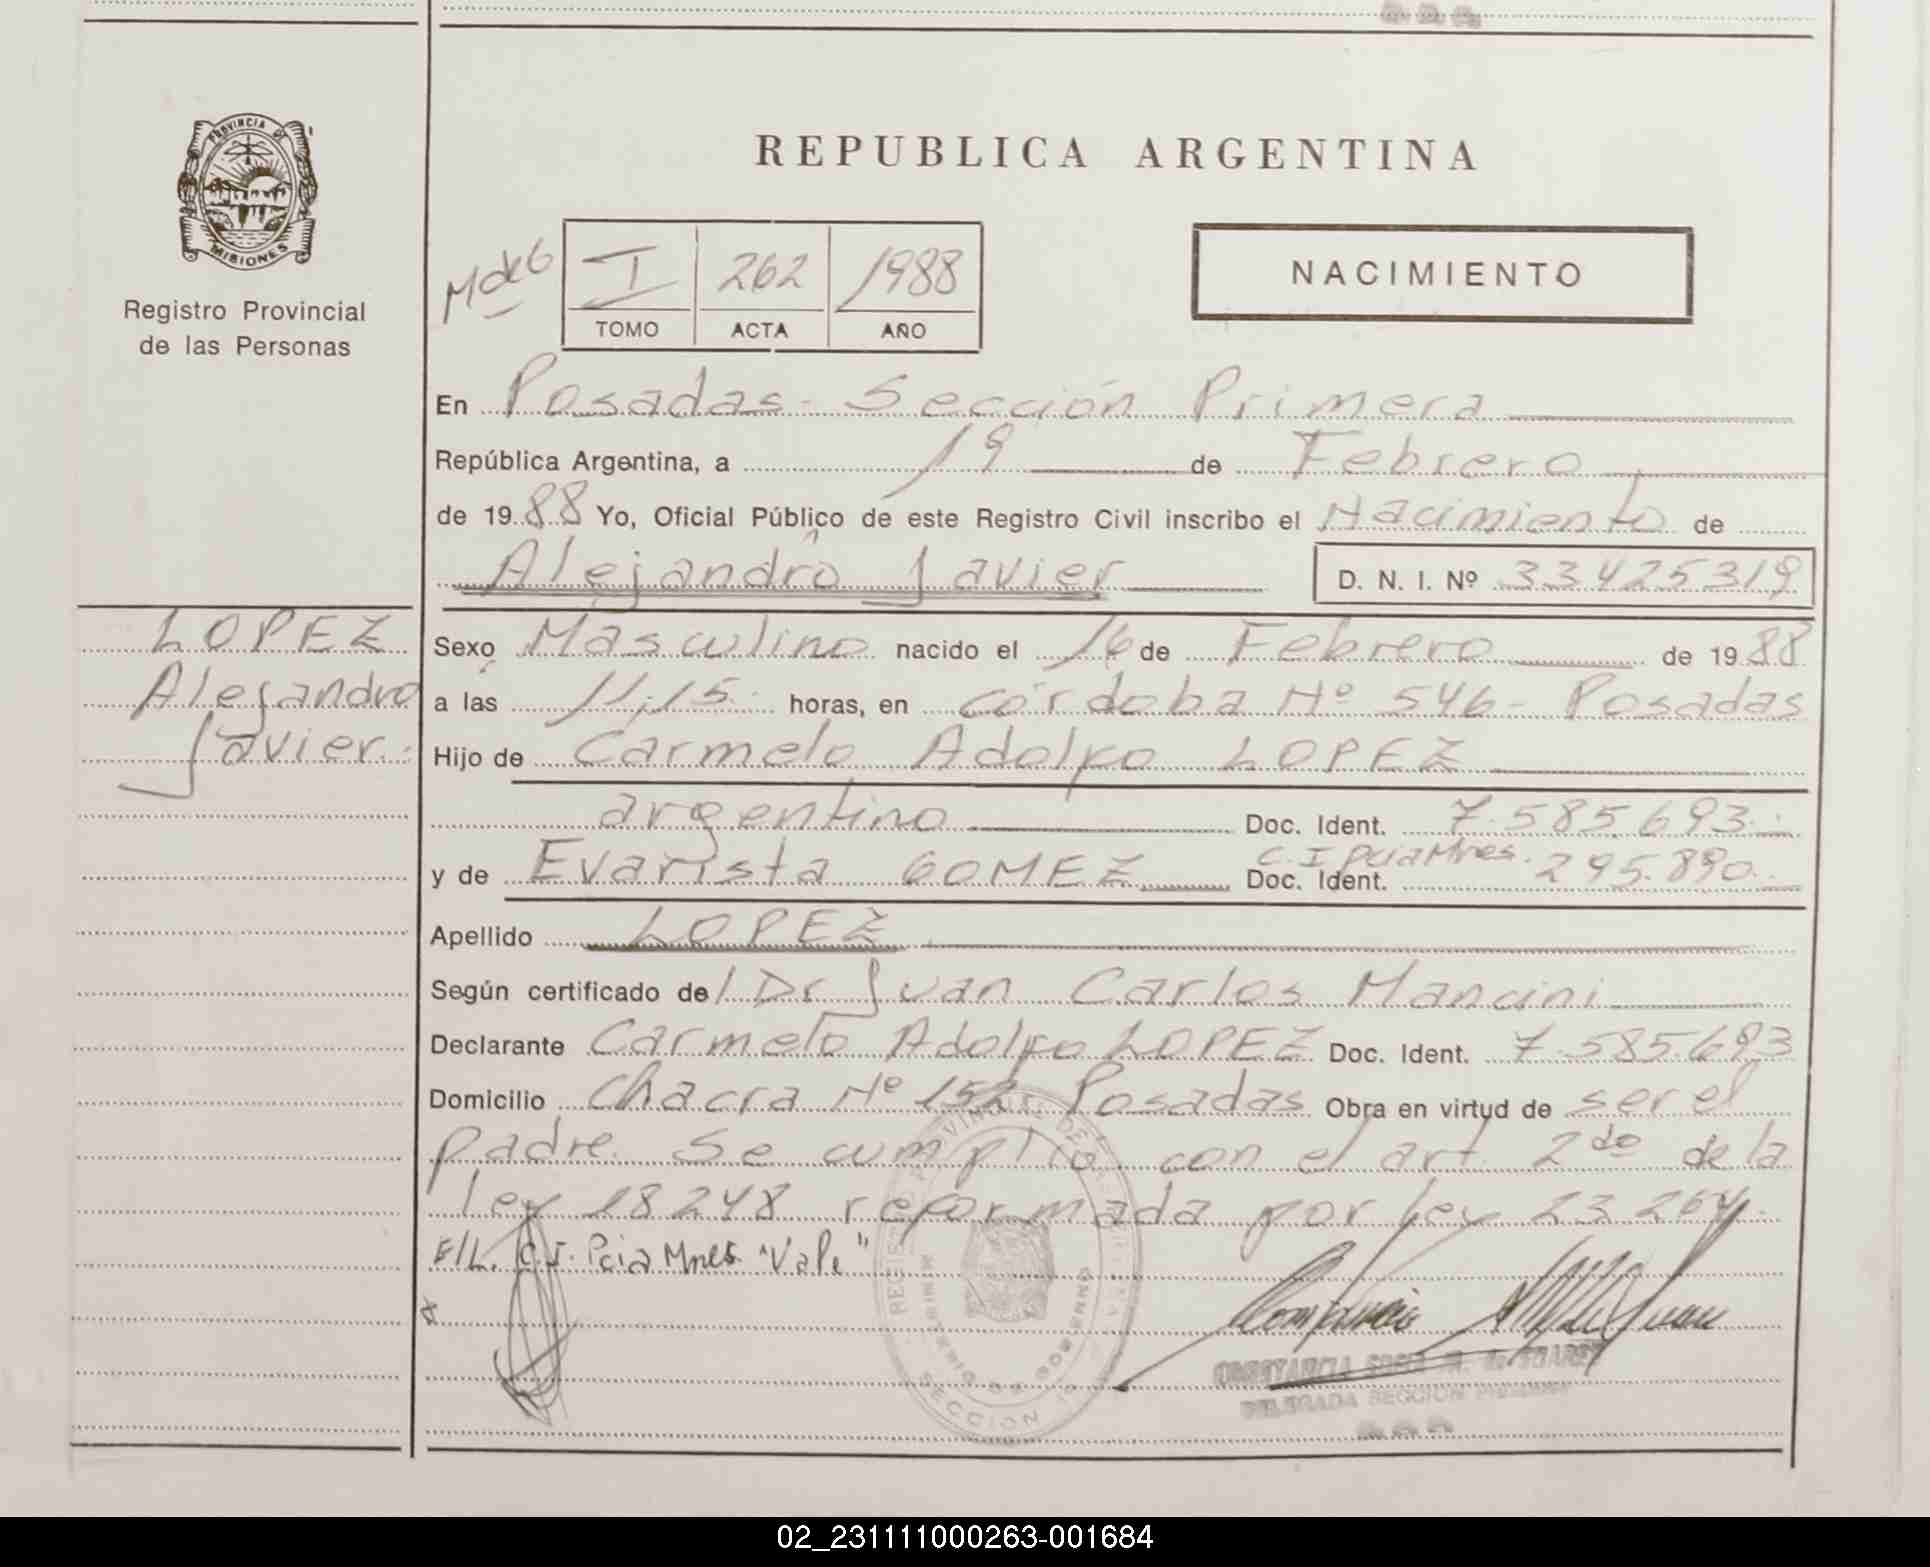 PROVINCIA DE
MISIONES
Registro Provincial
de las Personas
LOPEZ
Alejandro
Javier.
REPUBLICA ARGENTINA
I 262 1988
TOMO ACTA AÑO
NACIMIENTO
En Posadas - Sección Primera
República Argentina, a 19 de Febrero
de 1988 Yo, Oficial Público de este Registro Civil inscribo el Nacimiento de
Alejandro Javier D. N. I. Nº 33425319
Sexo Masculino nacido el 16 de Febrero de 1988
a las 11,15. horas, en córdoba Nº 546 - Posadas
Hijo de Carmelo Adolfo LOPEZ
argentino Doc. Ident. 7.585.693.
C. I Pcia Mnes.
y de Evarista GOMEZ Doc. Ident. 295.890.
Apellido LOPEZ
Según certificado del Dr Juan Carlos Mancini
Declarante Carmelo Adolfo LOPEZ Doc. Ident. 7.585.693
Domicilio Chacra Nº 152 Posadas Obra en virtud de ser el
padre. Se cumplió con el art. 2do de la
ley 18248 reformada por ley 23.264.
E/L. C.I. Pcia Mnes. "Vale"
DELEGADA SECCION PRIMERA
MINISTERIO DE GOBIERNO
SECCION 1a
02_231111000263-001684